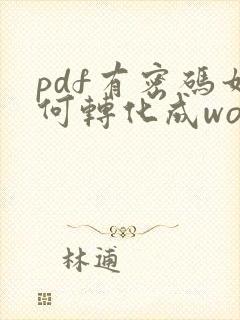 pdf有密碼如
何轉化成wo
林逋